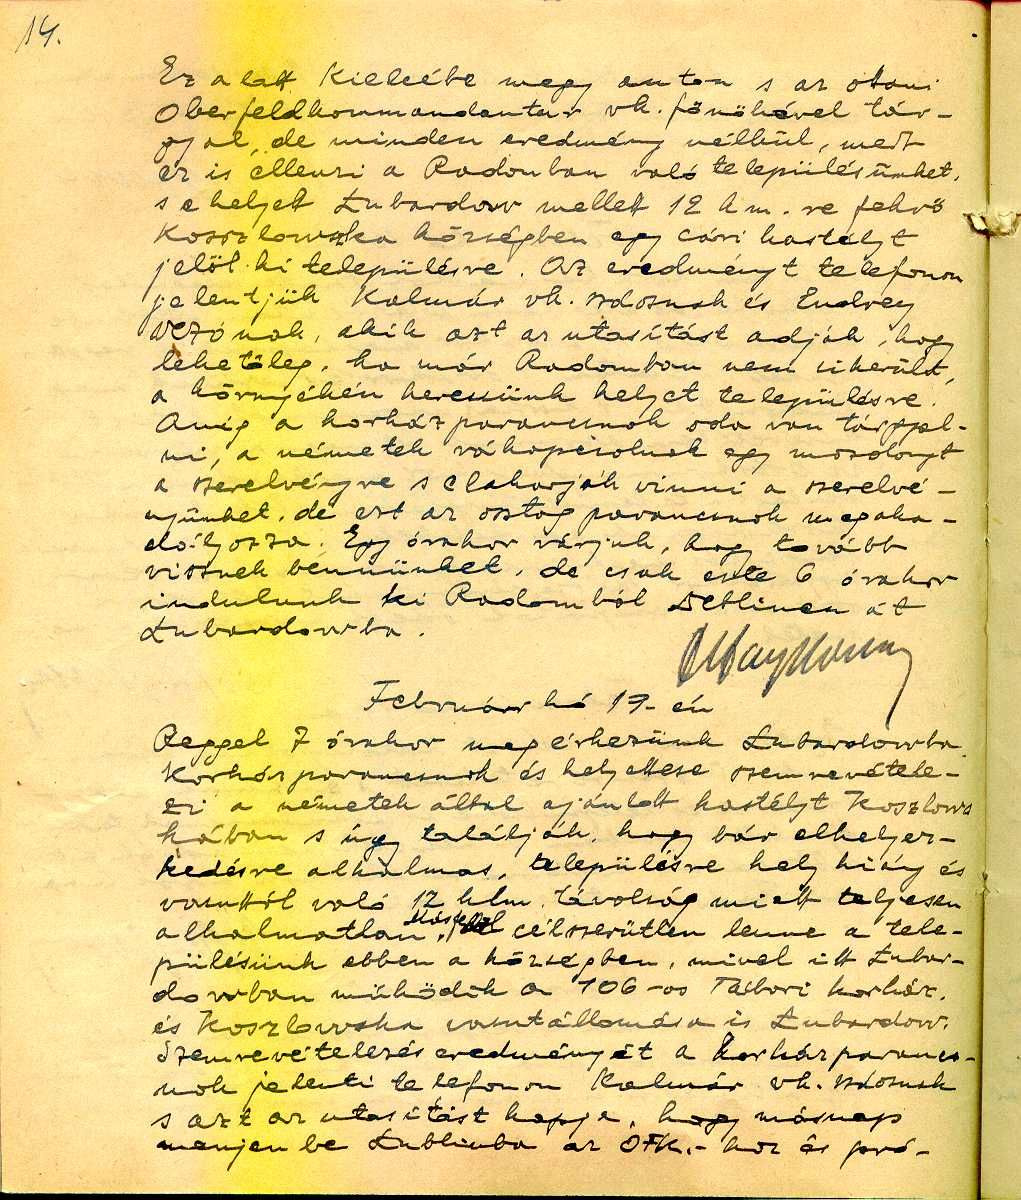 14.
Ez alatt Kielcébe megy auton s az ottani
Oberfeldkommandantur vk. főnökével tár-
gyal, de minden eredmény nélkül, mert
ez is ellenzi a Radomban való településünket,
s e helyett Lubardow mellett 12 km.re fekvő
Koszlowska községben egy cári kastélyt
jelöl ki településre. Az eredményt telefonon
jelentjük Kalmár vk. szdosnak és Endrey
vezőnak, akik azt az utasítást adják, hogy
lehetőleg, ha már Radomban nem sikerült,
a környékén keressünk helyet településre.
Amig a korházparancsnok oda van tárgyal-
ni, a németek rákapcsolnak egy mozdonyt
a szerelvényre s el akarják vinni a szerelvé-
nyünket, de ezt az osztag parancsnok megaka-
dályozza. Egy órakor várjuk, hogy tovább
visznek bennünket, de csak este 6 órakor
indulunk ki Radomból Deblinen át
Lubardowba.
Február hó 19-én
Reggel 7 órakor megérkezünk Lubardowba.
Korházparancsnok és helyettese szemrevétele-
zi a németek által ajánlott kastélyt Koszlows
kában s úgy találják, hogy bár elhelyez-
kedésre alkalmas, településre hely hiány és
vasuttól való 12 klm. távolság miatt teljesen
alkalmatlan. célszerűtlen lenne a tele-
pülésünk ebben a községben, mivel itt Lubar-
dowban müködik a 106-os Tábori korház,
és Koszlowska vasutállomása is Lubardow.
Szemrevételezés eredményét a korházparancs-
nok jelenti telefonon Kalmár vk. szdosnak
s azt az utasítást kapja, hogy másnap
menjen be Lublinba az OFK.-hoz és pró-